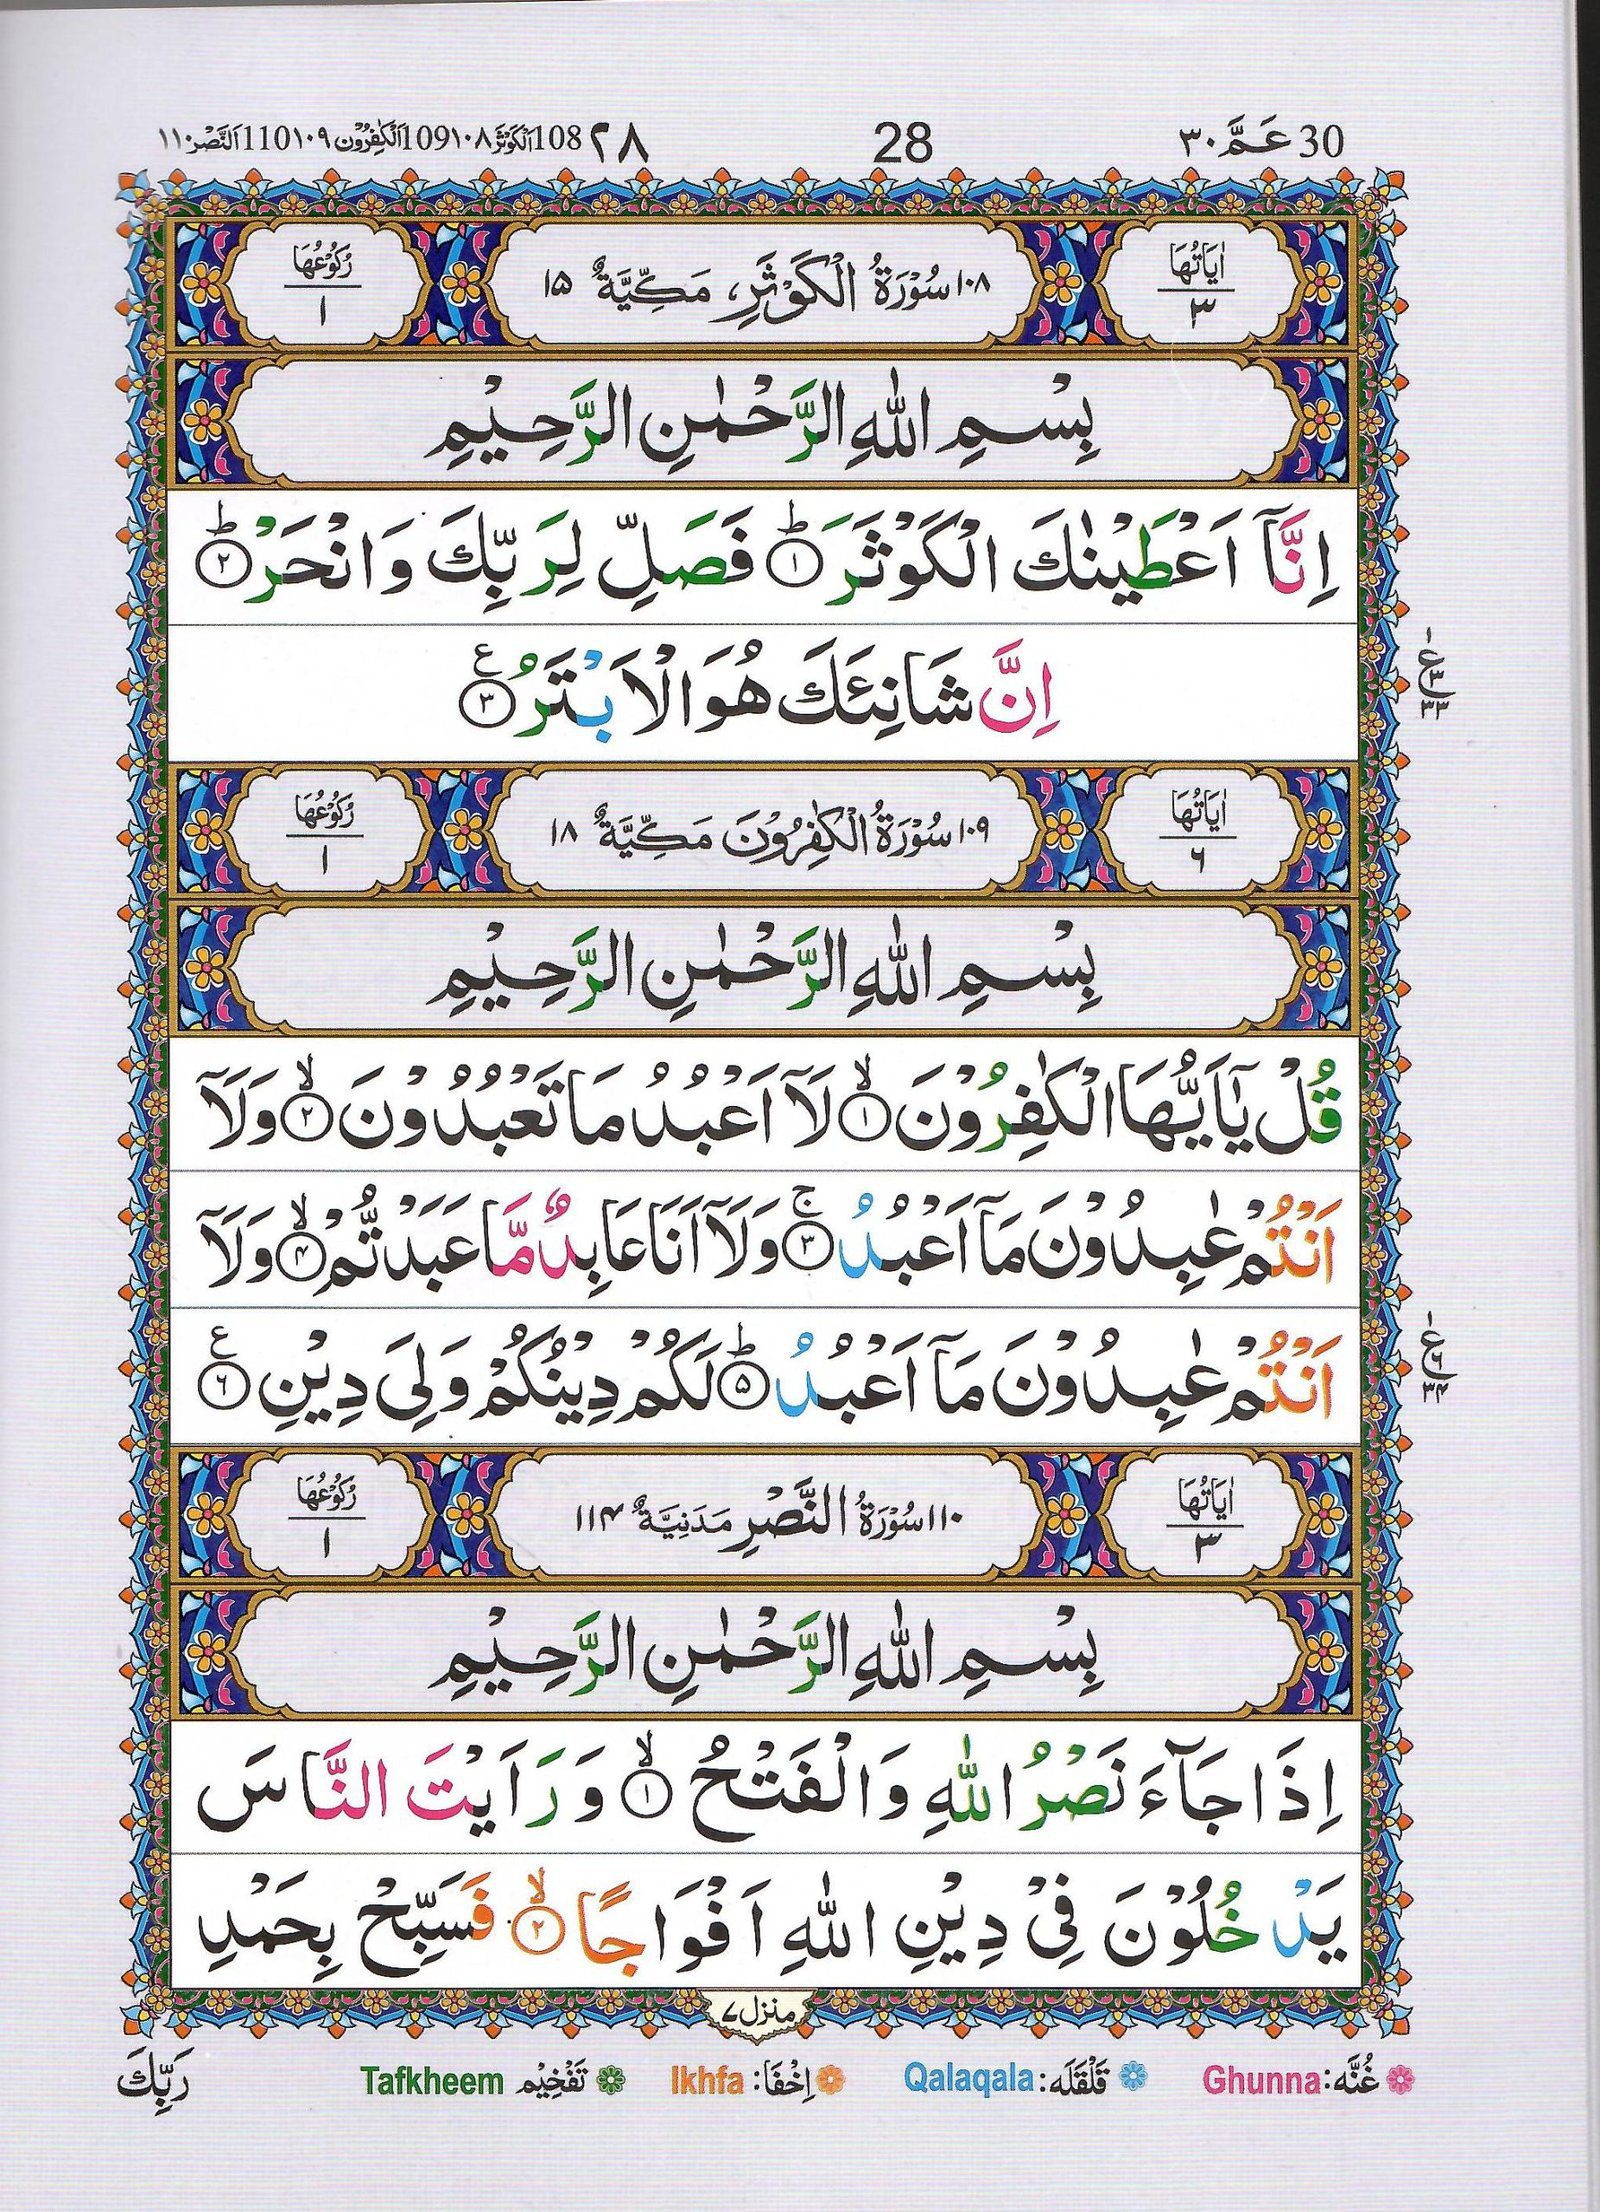 30 عَمَّ ۳۰ 28 ۲۸ 108 اَلْكَوْثَر ۱۰۸ 109 اَلْكٰفِرُوْن ۱۰۹ 110 اَلنَّصْر ۱۱۰
اٰيَاتُهَا ۳ ۱۰۸ سُوْرَةُ الْكَوْثَرِ، مَكِّيَّةٌ ۱۵ رُكُوْعُهَا ۱
بِسْمِ اللّٰهِ الرَّحْمٰنِ الرَّحِيْمِ
اِنَّاۤ اَعْطَيْنٰكَ الْكَوْثَرَ ؕ ۱ فَصَلِّ لِرَبِّكَ وَانْحَرْ ؕ ۲
اِنَّ شَانِئَكَ هُوَ الْاَبْتَرُ ۳ ع
ع ۳ ۳۳
اٰيَاتُهَا ۶ ۱۰۹ سُوْرَةُ الْكٰفِرُوْنَ مَكِّيَّةٌ ۱۸ رُكُوْعُهَا ۱
بِسْمِ اللّٰهِ الرَّحْمٰنِ الرَّحِيْمِ
قُلْ يٰۤاَيُّهَا الْكٰفِرُوْنَ ۙ ۱ لَاۤ اَعْبُدُ مَا تَعْبُدُوْنَ ۙ ۲ وَلَاۤ
اَنْتُمْ عٰبِدُوْنَ مَاۤ اَعْبُدُ ۚ ۳ وَلَاۤ اَنَا عَابِدٌ مَّا عَبَدْتُّمْ ۙ ۴ وَلَاۤ
اَنْتُمْ عٰبِدُوْنَ مَاۤ اَعْبُدُ ؕ ۵ لَكُمْ دِيْنُكُمْ وَلِيَ دِيْنِ ۶ ع
ع ۶ ۳۴
اٰيَاتُهَا ۳ ۱۱۰ سُوْرَةُ النَّصْرِ مَدَنِيَّةٌ ۱۱۴ رُكُوْعُهَا ۱
بِسْمِ اللّٰهِ الرَّحْمٰنِ الرَّحِيْمِ
اِذَا جَآءَ نَصْرُ اللّٰهِ وَالْفَتْحُ ۙ ۱ وَرَاَيْتَ النَّاسَ
يَدْخُلُوْنَ فِيْ دِيْنِ اللّٰهِ اَفْوَاجًا ۙ ۲ فَسَبِّحْ بِحَمْدِ
منزل ۷
غُنَّه: Ghunna قَلْقَلَه: Qalaqala اِخْفَا: Ikhfa تَفْخِيْم Tafkheem
رَبِّكَ